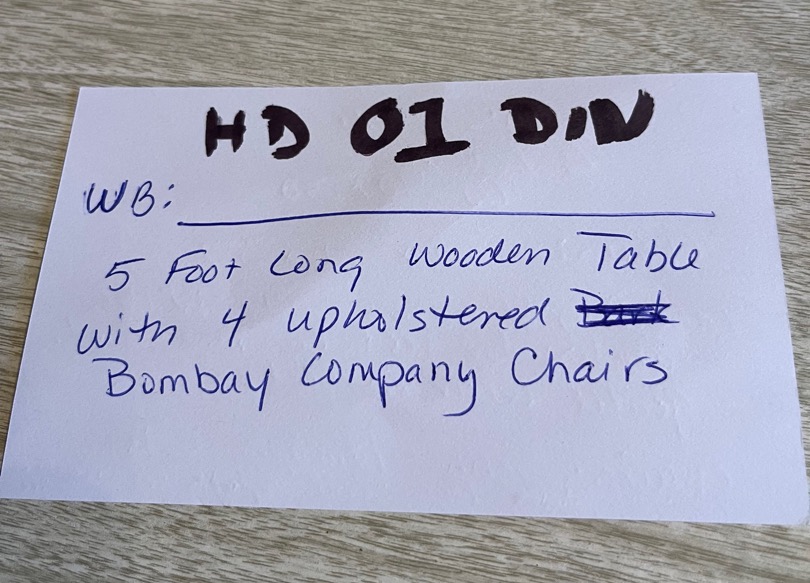 HD 01 DIN
WB:
5 Foot Long Wooden Table
with 4 upholstered
Bombay Company Chairs